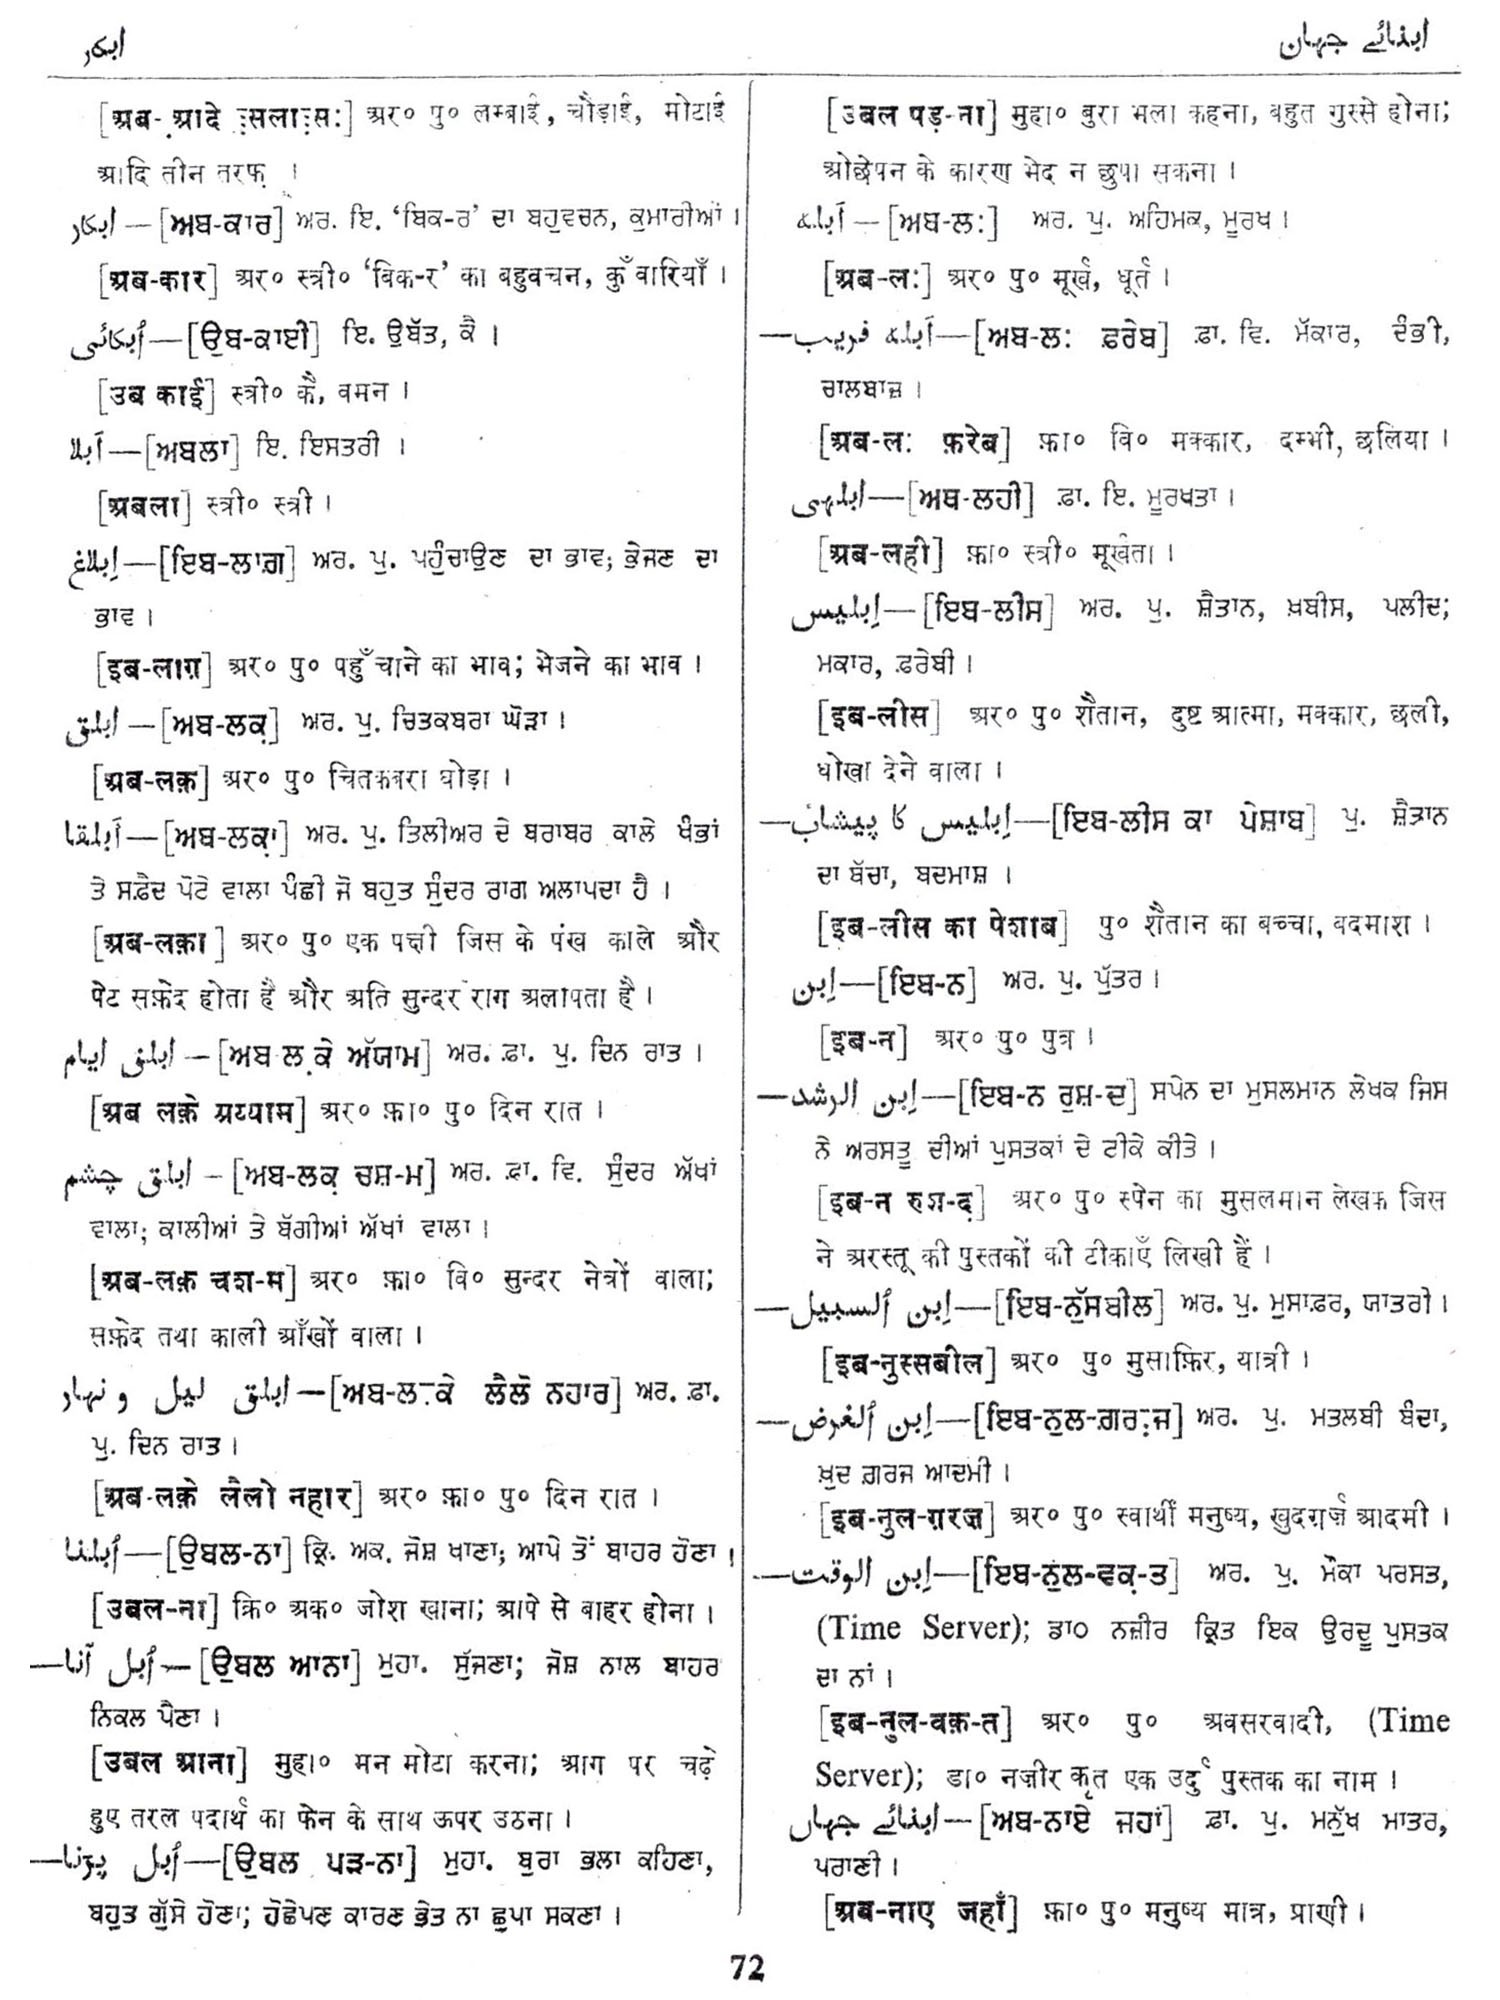 ابکار
ابنائے جہان
[अब-आदे सलासः] अर० पु० लम्बाई, चौड़ाई, मोटाई
आदि तीन तरफ़ ।
ابکار — [ਅਬ-ਕਾਰ] ਅਰ. ਇ. ‘ਬਿਕ-ਰ’ ਦਾ ਬਹੁਵਚਨ, ਕੁਮਾਰੀਆਂ ।
[अब-कार] अर० स्त्री० ‘बिक-र’ का बहुवचन, कुँवारियाँ ।
اُبکائی—[ਉਬ-ਕਾਈ] ਇ. ਉਬੱਤ, ਕੈ ।
[उब काई] स्त्री० कै, वमन ।
اَبلا—[ਅਬਲਾ] ਇ. ਇਸਤਰੀ ।
[अबला] स्त्री० स्त्री ।
اِبلاغ—[ਇਬ-ਲਾਗ਼] ਅਰ. ਪੁ. ਪਹੁੰਚਾਉਣ ਦਾ ਭਾਵ; ਭੇਜਣ ਦਾ
ਭਾਵ ।
[इब-लाग़] अर० पु० पहुँचाने का भाव; भेजने का भाव ।
ابلق—[ਅਬ-ਲਕ਼] ਅਰ. ਪੁ. ਚਿਤਕਬਰਾ ਘੋੜਾ ।
[अब-लक़] अर० पु० चितकबरा घोड़ा ।
اَبلقا—[ਅਬ-ਲਕ਼ਾ] ਅਰ. ਪੁ. ਤਿਲੀਅਰ ਦੇ ਬਰਾਬਰ ਕਾਲੇ ਖੰਭਾਂ
ਤੇ ਸਫ਼ੈਦ ਪੋਟੇ ਵਾਲਾ ਪੰਛੀ ਜੋ ਬਹੁਤ ਸੁੰਦਰ ਰਾਗ ਅਲਾਪਦਾ ਹੈ ।
[अब-लक़ा] अर० पु० एक पक्षी जिस के पंख काले और
पेट सफ़ेद होता है और अति सुन्दर राग अलापता है ।
ابلق ایام — [ਅਬ ਲ਼ਕੇ ਅੱਯਾਮ] ਅਰ. ਫ਼ਾ. ਪੁ. ਦਿਨ ਰਾਤ ।
[अब लक़े अय्याम] अर० फ़ा० पु० दिन रात ।
ابلق چشم — [ਅਬ-ਲਕ਼ ਚਸ਼-ਮ] ਅਰ. ਫ਼ਾ. ਵਿ. ਸੁੰਦਰ ਅੱਖਾਂ
ਵਾਲਾ; ਕਾਲੀਆਂ ਤੇ ਬੱਗੀਆਂ ਅੱਖਾਂ ਵਾਲਾ ।
[अब-लक़ चश-म] अर० फ़ा० वि० सुन्दर नेत्रों वाला;
सफ़ेद तथा काली आँखों वाला ।
ابلق لیل و نہار—[ਅਬ-ਲ਼ਕੇ ਲੈਲੋ ਨਹਾਰ] ਅਰ. ਫ਼ਾ.
ਪੁ. ਦਿਨ ਰਾਤ ।
[अब-लक़े लैलो नहार] अर० फ़ा० पु० दिन रात ।
اُبلنا—[ਉਬਲ-ਨਾ] ਕ੍ਰਿ. ਅਕ. ਜੋਸ਼ ਖਾਣਾ; ਆਪੇ ਤੋਂ ਬਾਹਰ ਹੋਣਾ ।
[उबल-ना] क्रि० अक० जोश खाना; आपे से बाहर होना ।
اُبل آنا — [ਉਬਲ ਆਨਾ] ਮੁਹਾ. ਸੁੱਜਣਾ; ਜੋਸ਼ ਨਾਲ ਬਾਹਰ
ਨਿਕਲ ਪੈਣਾ ।
[उबल आना] मुहा० मन मोटा करना; आग पर चढ़े
हुए तरल पदार्थ का फेन के साथ ऊपर उठना ।
اُبل پڑنا—[ਉਬਲ ਪੜ-ਨਾ] ਮੁਹਾ. ਬੁਰਾ ਭਲਾ ਕਹਿਣਾ,
ਬਹੁਤ ਗੁੱਸੇ ਹੋਣਾ; ਹੋਛੇਪਣ ਕਾਰਣ ਭੇਤ ਨਾ ਛੁਪਾ ਸਕਣਾ ।
[उबल पड़-ना] मुहा० बुरा भला कहना, बहुत गुस्से होना;
ओछेपन के कारण भेद न छुपा सकना ।
اَبلہ — [ਅਬ-ਲਃ] ਅਰ. ਪੁ. ਅਹਿਮਕ, ਮੂਰਖ ।
[अब-लः] अर० पु० मूर्ख, धूर्त ।
اَبلہ فریب—[ਅਬ-ਲਃ ਫ਼ਰੇਬ] ਫ਼ਾ. ਵਿ. ਮੱਕਾਰ, ਦੰਭੀ,
ਚਾਲਬਾਜ਼ ।
[अब-लः फ़रेब] फ़ा० वि० मक्कार, दम्भी, छलिया ।
ابلہی—[ਅਬ-ਲਹੀ] ਫ਼ਾ. ਇ. ਮੂਰਖਤਾ ।
[अब-लही] फ़ा० स्त्री० मूर्खता ।
اِبلیس—[ਇਬ-ਲੀਸ] ਅਰ. ਪੁ. ਸ਼ੈਤਾਨ, ਖ਼ਬੀਸ, ਪਲੀਦ;
ਮਕਾਰ, ਫ਼ਰੇਬੀ ।
[इब-लीस] अर० पु० शैतान, दुष्ट आत्मा, मक्कार, छली,
धोखा देने वाला ।
اِبلیس کا پیشاب—[ਇਬ-ਲੀਸ ਕਾ ਪੇਸ਼ਾਬ] ਪੁ. ਸ਼ੈਤਾਨ
ਦਾ ਬੱਚਾ, ਬਦਮਾਸ਼ ।
[इब-लीस का पेशाब] पु० शैतान का बच्चा, बदमाश ।
اِبن—[ਇਬ-ਨ] ਅਰ. ਪੁ. ਪੁੱਤਰ ।
[इब-न] अर० पु० पुत्र ।
اِبن الرشد—[ਇਬ-ਨ ਰੁਸ਼-ਦ] ਸਪੇਨ ਦਾ ਮੁਸਲਮਾਨ ਲੇਖਕ ਜਿਸ
ਨੇ ਅਰਸਤੂ ਦੀਆਂ ਪੁਸਤਕਾਂ ਦੇ ਟੀਕੇ ਕੀਤੇ ।
[इब-न रुश-द] अर० पु० स्पेन का मुसलमान लेखक जिस
ने अरस्तू की पुस्तकों की टीकाएँ लिखी हैं ।
اِبن اُلسبیل—[ਇਬ-ਨੁੱਸਬੀਲ] ਅਰ. ਪੁ. ਮੁਸਾਫ਼ਰ, ਯਾਤਰੀ ।
[इब-नुस्सबील] अर० पु० मुसाफ़िर, यात्री ।
اِبن اُلغرض—[ਇਬ-ਨੁਲ-ਗ਼ਰਜ਼] ਅਰ. ਪੁ. ਮਤਲਬੀ ਬੰਦਾ,
ਖ਼ੁਦ ਗ਼ਰਜ ਆਦਮੀ ।
[इब-नुल-ग़रज़] अर० पु० स्वार्थी मनुष्य, खुदग़र्ज़ आदमी ।
اِبن الوقت—[ਇਬ-ਨੁਲ-ਵਕ਼-ਤ] ਅਰ. ਪੁ. ਮੌਕਾ ਪਰਸਤ,
(Time Server); ਡਾ੦ ਨਜ਼ੀਰ ਕ੍ਰਿਤ ਇਕ ਉਰਦੂ ਪੁਸਤਕ
ਦਾ ਨਾਂ ।
[इब-नुल-वक़-त] अर० पु० अवसरवादी, (Time
Server); डा० नज़ीर कृत एक उर्दू पुस्तक का नाम ।
ابنائے جہاں—[ਅਬ-ਨਾਏ ਜਹਾਂ] ਫ਼ਾ. ਪੁ. ਮਨੁੱਖ ਮਾਤਰ,
ਪਰਾਣੀ ।
[अब-नाए जहाँ] फ़ा० पु० मनुष्य मात्र, प्राणी ।
72